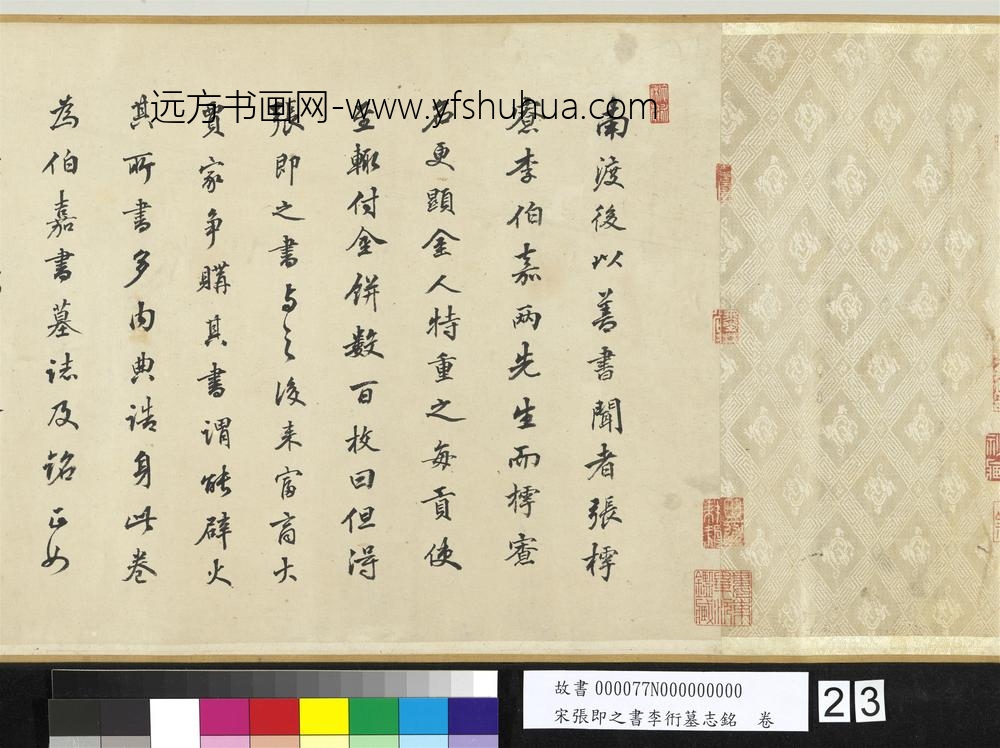 远方书画网-www.yfshuhua.com
南渡後以善書聞者張樗
寮李伯嘉兩先生而樗寮
名更顕金人特重之每貢使
至輙付金餅数百枚曰但得
張即之書与之後来富商大
賈家争購其書謂能辟火
其所書多内典誥身此卷
為伯嘉書墓誌及銘正如
故書 000077N000000000
宋張即之書李衎墓志銘 卷
23